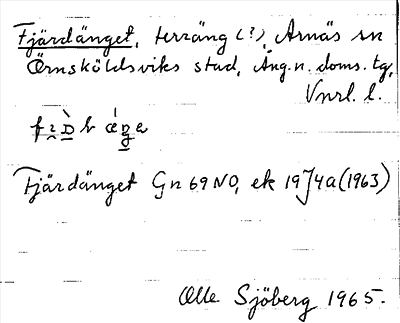 Fjärdänget, terräng (?), Arnäs sn
Örnsköldsviks stad, Ång.n. doms. tg,
Vnrl. l.
Fjärdänget Gn 69 NO, ek 19J4a (1963)
Olle Sjöberg 1965.